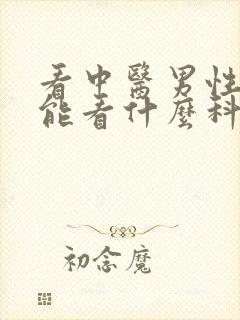 看中醫男性
能看什麼科
初念魔